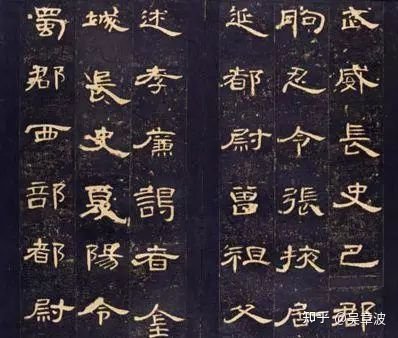 武威長史巴郡
朐忍令張掖居
延都尉曾祖父
述孝廉謁者金
城長史夏陽令
蜀郡西部都尉
知乎 @吴章波